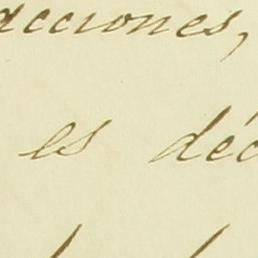 acciones,
es déc